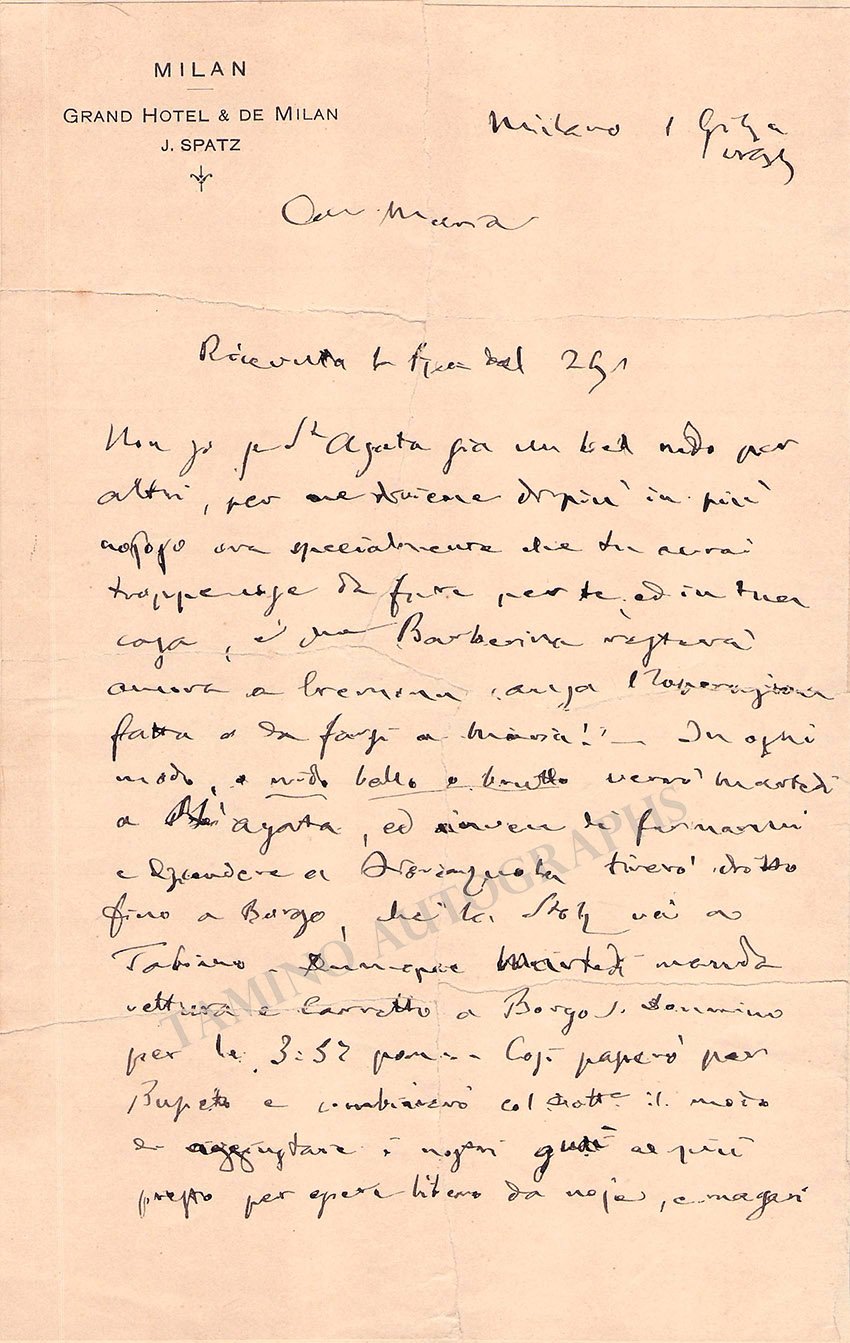 MILAN
GRAND HOTEL & DE MILAN
J. SPATZ
Milano 1
Maria
Ricevuta la tua del
Non so se St Agata sia un bel nido per
altri, per me diviene di più in più
noioso ora specialmente che tu avrai
troppe cose da fare per te, ed in tua
casa, e che Barberina resterà
ancora a Cremona causa l'operazione
fatta o da farsi a Maria! — In ogni
modo, o nido bello o brutto verrò Martedì
a St Agata, ed invece di fermarmi
e scendere a Fiorenzuola tirerò dritto
fino a Borgo, che la Stolz va a
Tabiano. Dunque Martedì manda
vettura e carretto a Borgo S. Donnino
per le 3:52 pom. Così passerò per
Busseto e combinerò col Dott.e il modo
di aggiustare i nostri guai al più
presto per essere libero da noje, e magari
TAMINO AUTOGRAPHS